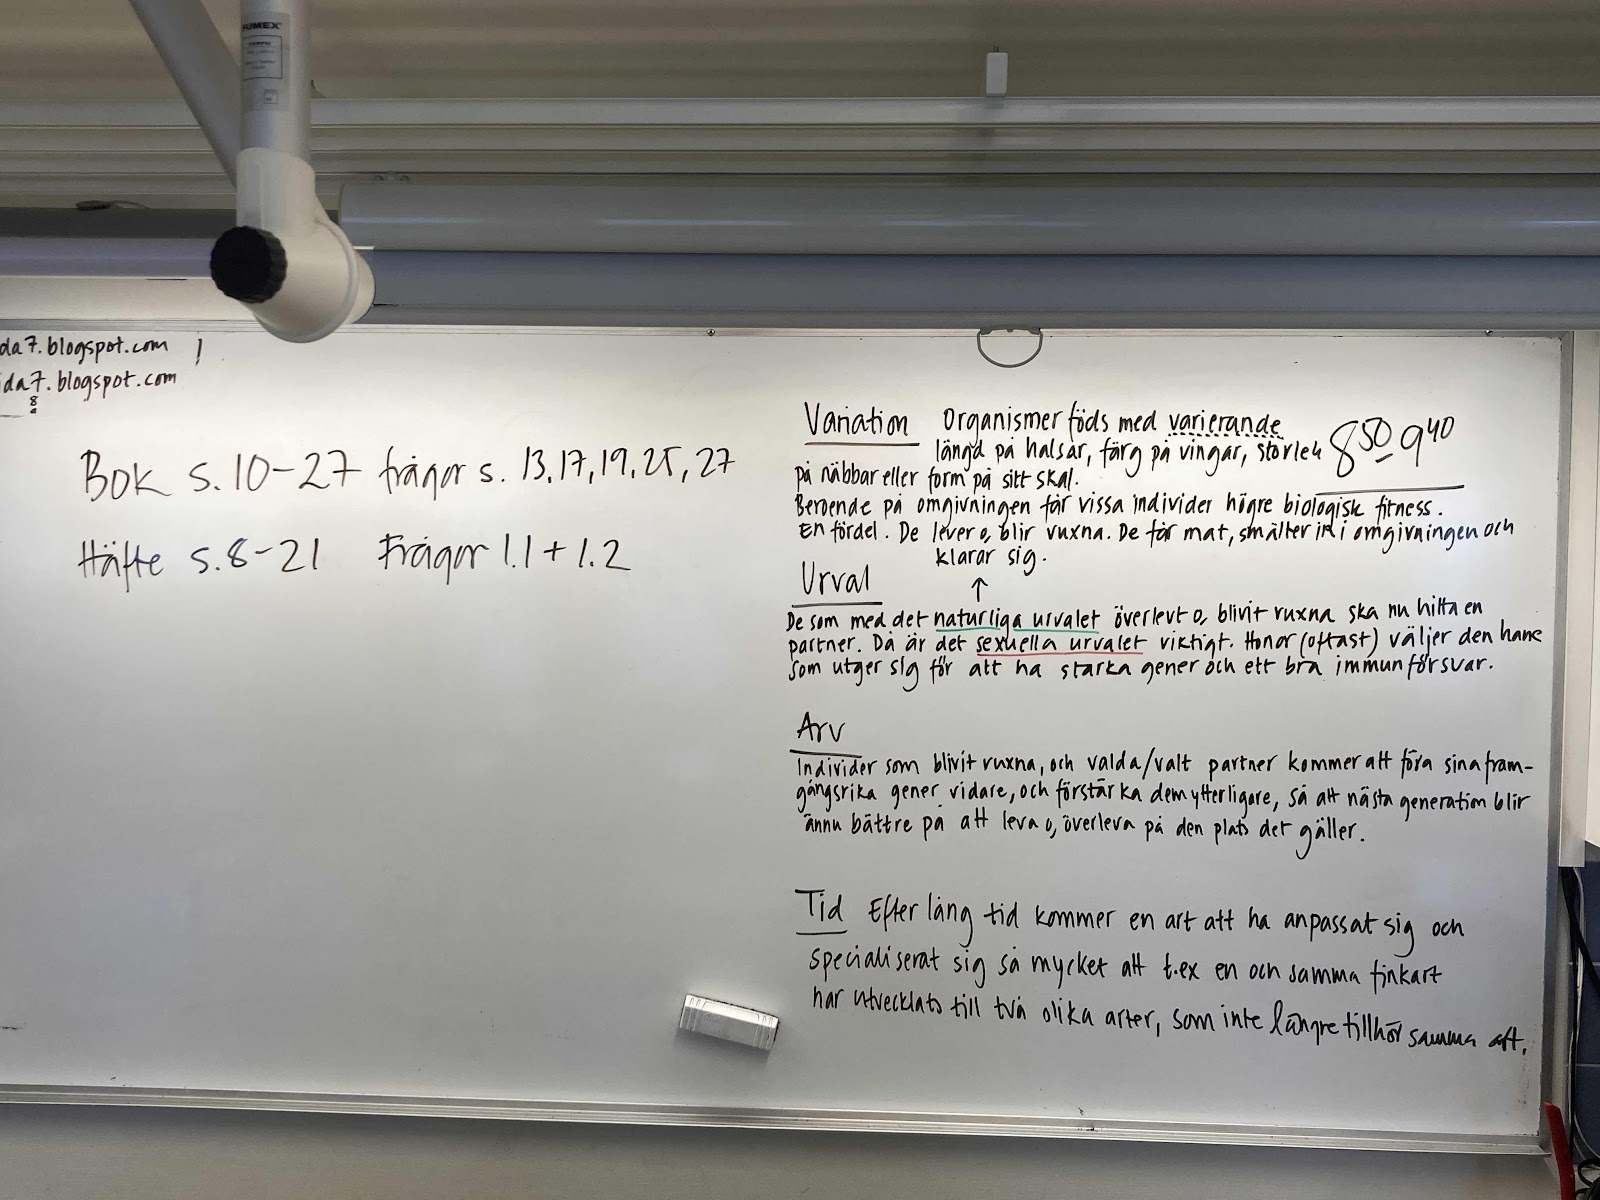 FUMEX
da7.blogspot.com !
ida7.blogspot.com
8
a
Bok s. 10-27 frågor s. 13, 17, 19, 25, 27
Häfte s. 8-21 Frågor 1.1 + 1.2
Variation Organismer föds med varierande
längd på halsar, färg på vingar, storlek
på näbbar eller form på sitt skal.
8 50 - 9 40
Beroende på omgivningen får vissa individer högre biologisk fitness.
En fördel. De lever o, blir vuxna. De får mat, smälter in i omgivningen och
klarar sig.
↑
Urval
De som med det naturliga urvalet överlevt o, blivit vuxna ska nu hitta en
partner. Då är det sexuella urvalet viktigt. Honor (oftast) väljer den hane
som utger sig för att ha starka gener och ett bra immunförsvar.
Arv
Individer som blivit vuxna, och valda/valt partner kommer att föra sina fram-
gångsrika gener vidare, och förstärka dem ytterligare, så att nästa generation blir
ännu bättre på att leva o, överleva på den plats det gäller.
Tid Efter lång tid kommer en art att ha anpassat sig och
specialiserat sig så mycket att t.ex en och samma finkart
har utvecklats till två olika arter, som inte längre tillhör samma art.